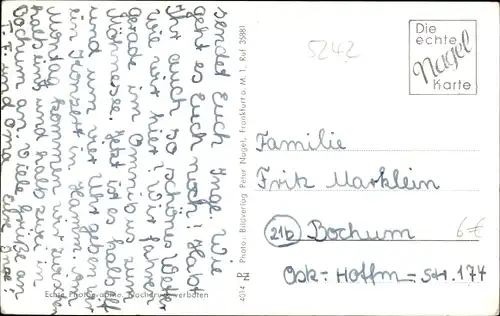 sendet Euch Inge. Wie
geht es Euch noch? Habt
Ihr auch so schönes Wetter
wie wir hier? Wir fahren
gerade im Omnibus zum
Möhnesee. Jetzt ist es halb elf
und um vier Uhr geben wir
ein Konzert in Hamm. Am
Montag kommen wir zwischen
halb eins und halb zwei in
Bochum an. Viele Grüße an
T. F. und Oma Eure Inge!
Echte Photographie. Nachdruck verboten
4014 Photo: Bildverlag Peter Nagel, Frankfurt a. M. 1. Ruf 35981
5242
Die
echte
Nagel
Karte
Familie
Fritz Marklein
21b Bochum
Osk.-Hoffm-Str. 174
6€